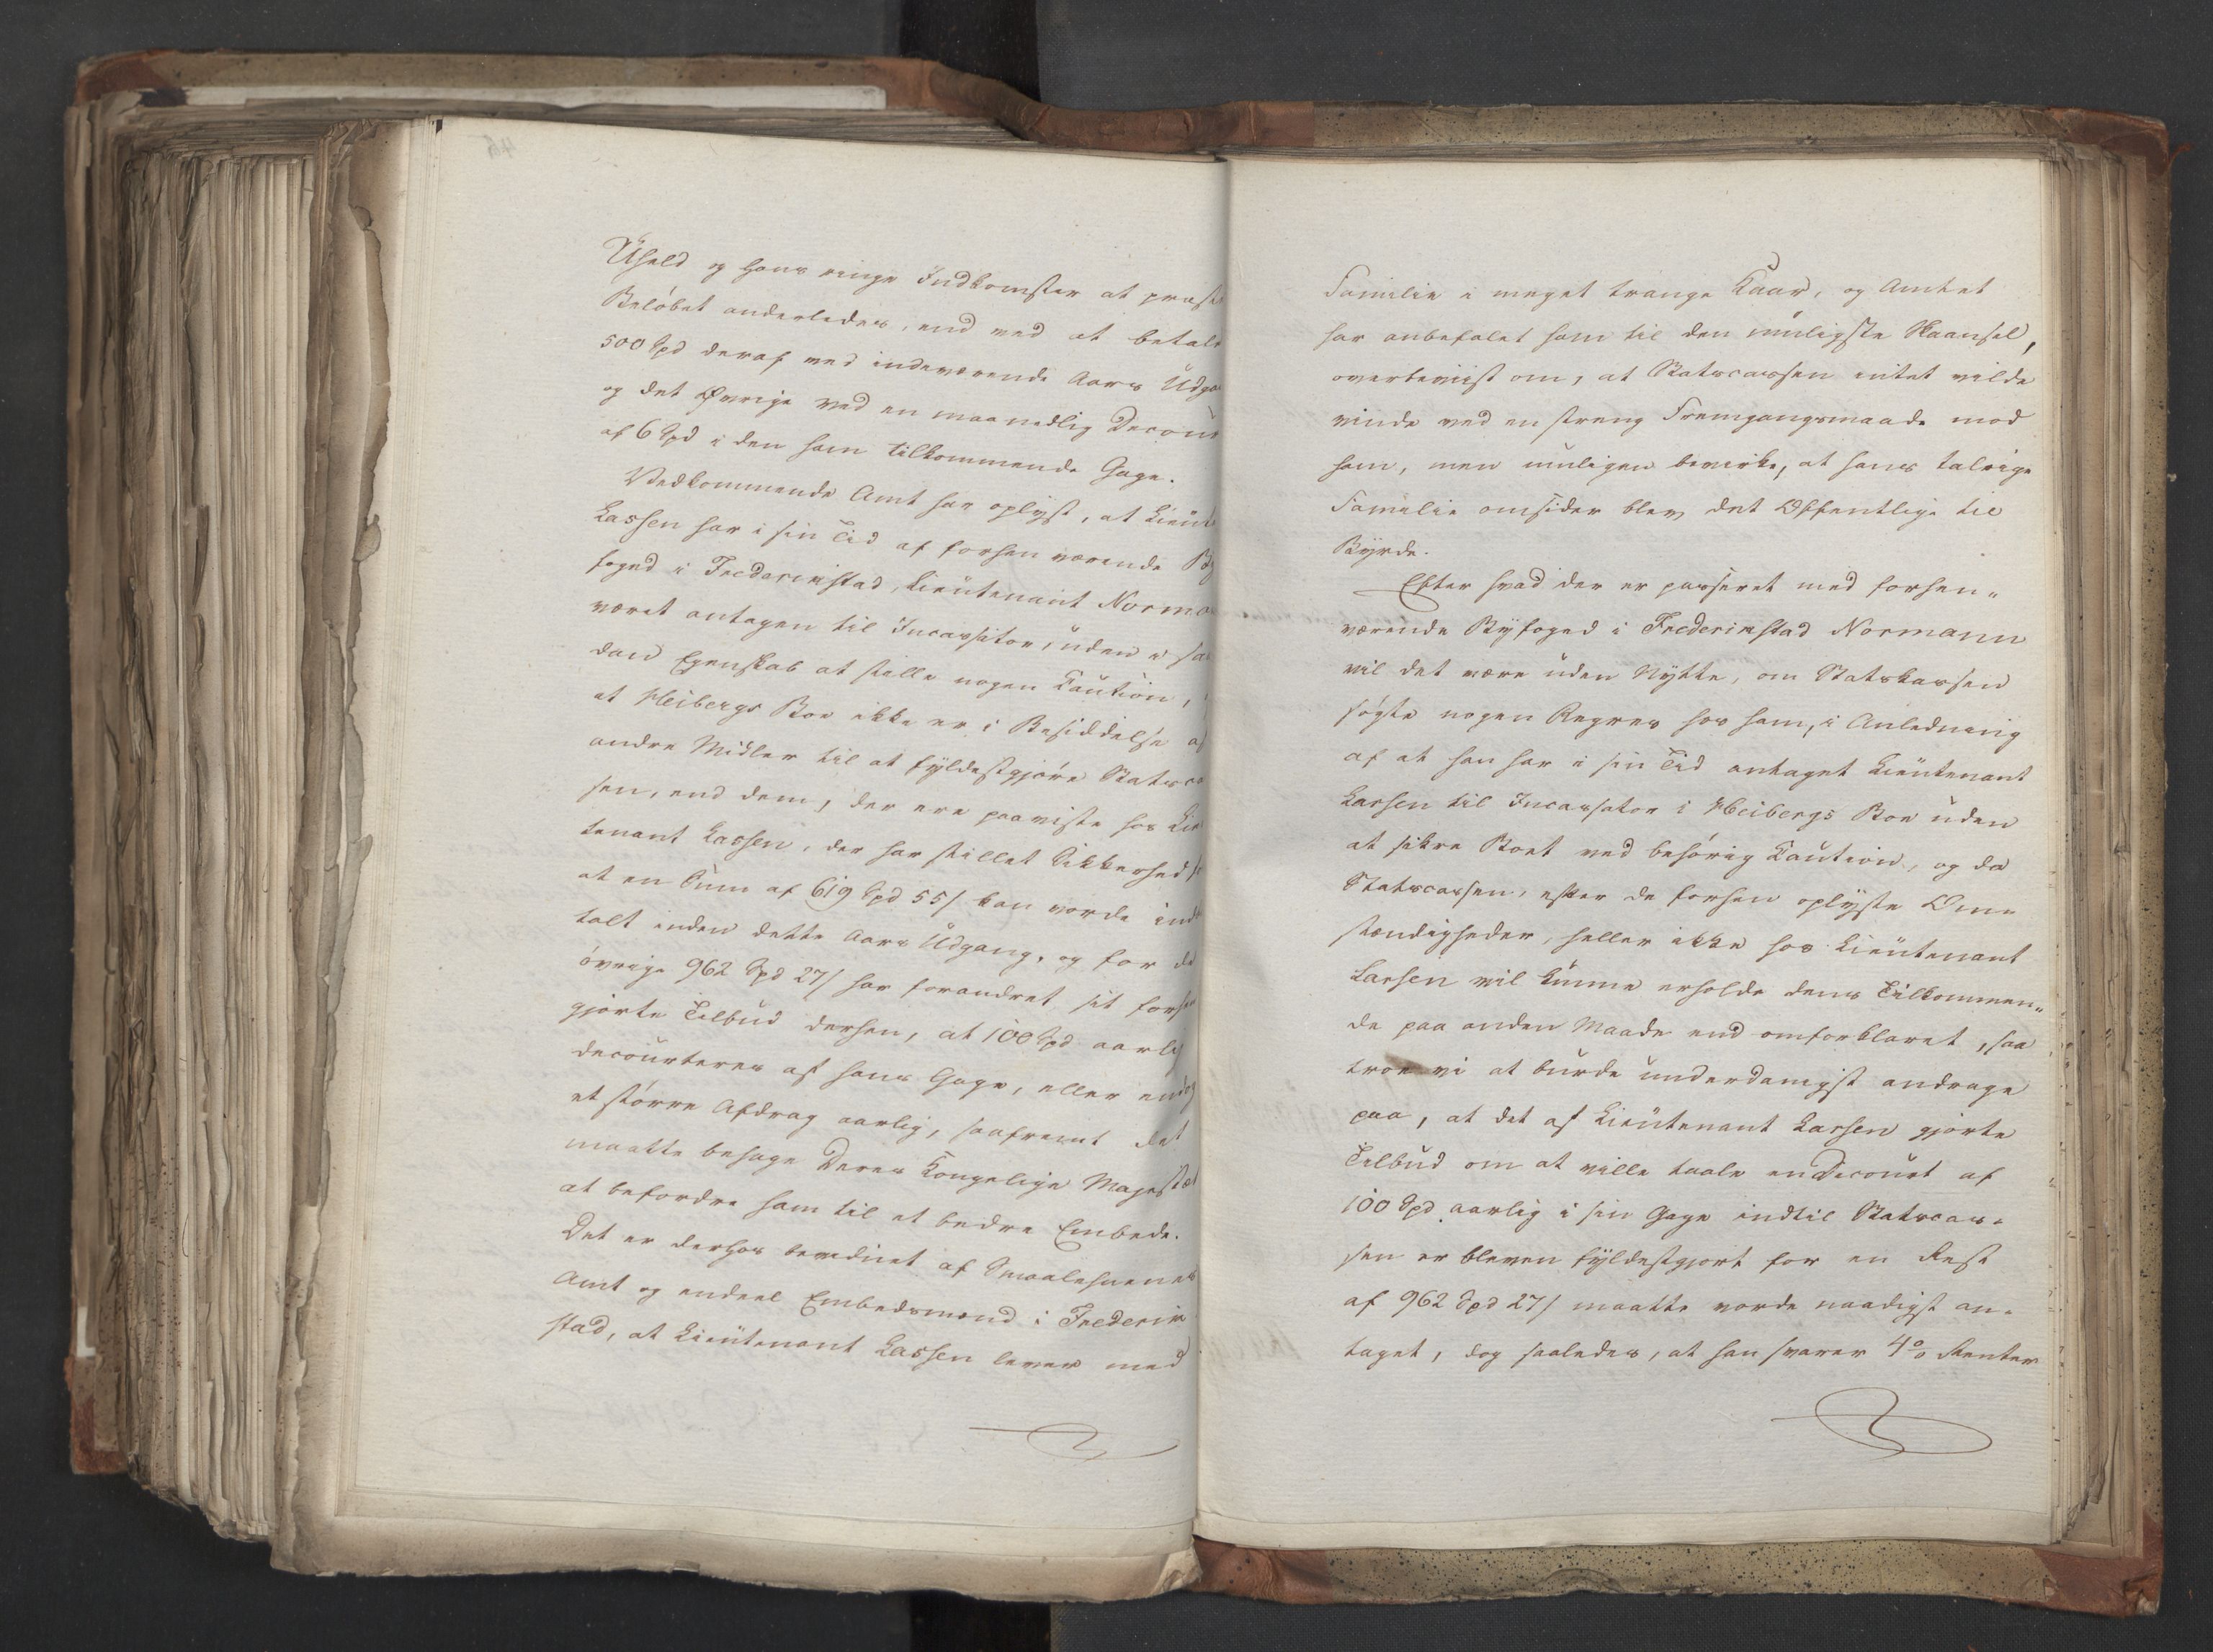 Uheld og hans ringe Indkomster at præste
Beløbet anderledes, end ved at betale
500 Spd deraf med indeværende Aars Udga
og det Øvrige ved en maanedlig Decour
af 6 Spd i den ham tilkommende Gage.
Vedkommende Amt har oplyst, at Lieute
Lassen har i sin Tid af forhen værende By
foged i Fredericstad, Lieutenant Norma
været antagen til Incassator, uden i saa
dan Egenskab at stille nogen Caution,
at Heibergs Boe ikke er i Besiddelse af
andre Midler til at fyldestgjøre Statsca
sen, end dem, der ere paaviste hos Lieu
tenant Lassen, der har stillet Sikkerhed f
at en Sum af 619 Spd 55/ kan vorde indb
talt inden dette Aars Udgang, og for de
øvrige 962 Spd 27/ har forandret sit forhen
gjorte Tilbud derhen, at 100 Spd aarlig
decourteres af hans Gage, eller endog
et større Afdrag aarlig, saafremt det
maatte behage Deres Kongelige Majestæt
at befordre ham til et bedre Embede.
Det er derhos bevidnet af Smaalehnenes
Amt og endeel Embedsmænd i Frederik
stad, at Lieutenant Lassen lever med
Familie i meget trange Kaar, og Amtet
har anbefalet ham til den muligste Skaansel,
overbeviist om, at Statscassen intet vilde
vinde ved en streng Fremgangsmaade mod
ham, men muligen bevirke, at hans talrige
Familie omsider blev det Offentlige til
Byrde.
Efter hvad der er passeret med forhen„
værende Byfoged i Fredericstad Normann
vil det være uden Nytte, om Statskassen
søgte nogen Regres hos ham, i Anledning
af at han har i sin Tid antaget Lieutenant
Lassen til Incassator i Heibergs Boe uden
at sikre Boet ved behørig Caution, og da
Statscassen, efter de forhen oplyste Om„
stændigheder, heller ikke hos Lieutenant
Lassen vil kunne erholde dens Tilkommen„
de paa anden Maade end omforklaret, saa
troe vi at burde underdanigst andrage
paa, at det af Lieutenant Lassen gjorte
Tilbud om at ville taale en Decourt af
100 Spd aarlig i sin Gage indtil Statscas„
sen er bleven fyldestgjort for en Rest
af 962 Spd 27/ maatte vorde naadigst an„
taget, dog saaledes, at han svarer 4% Renter